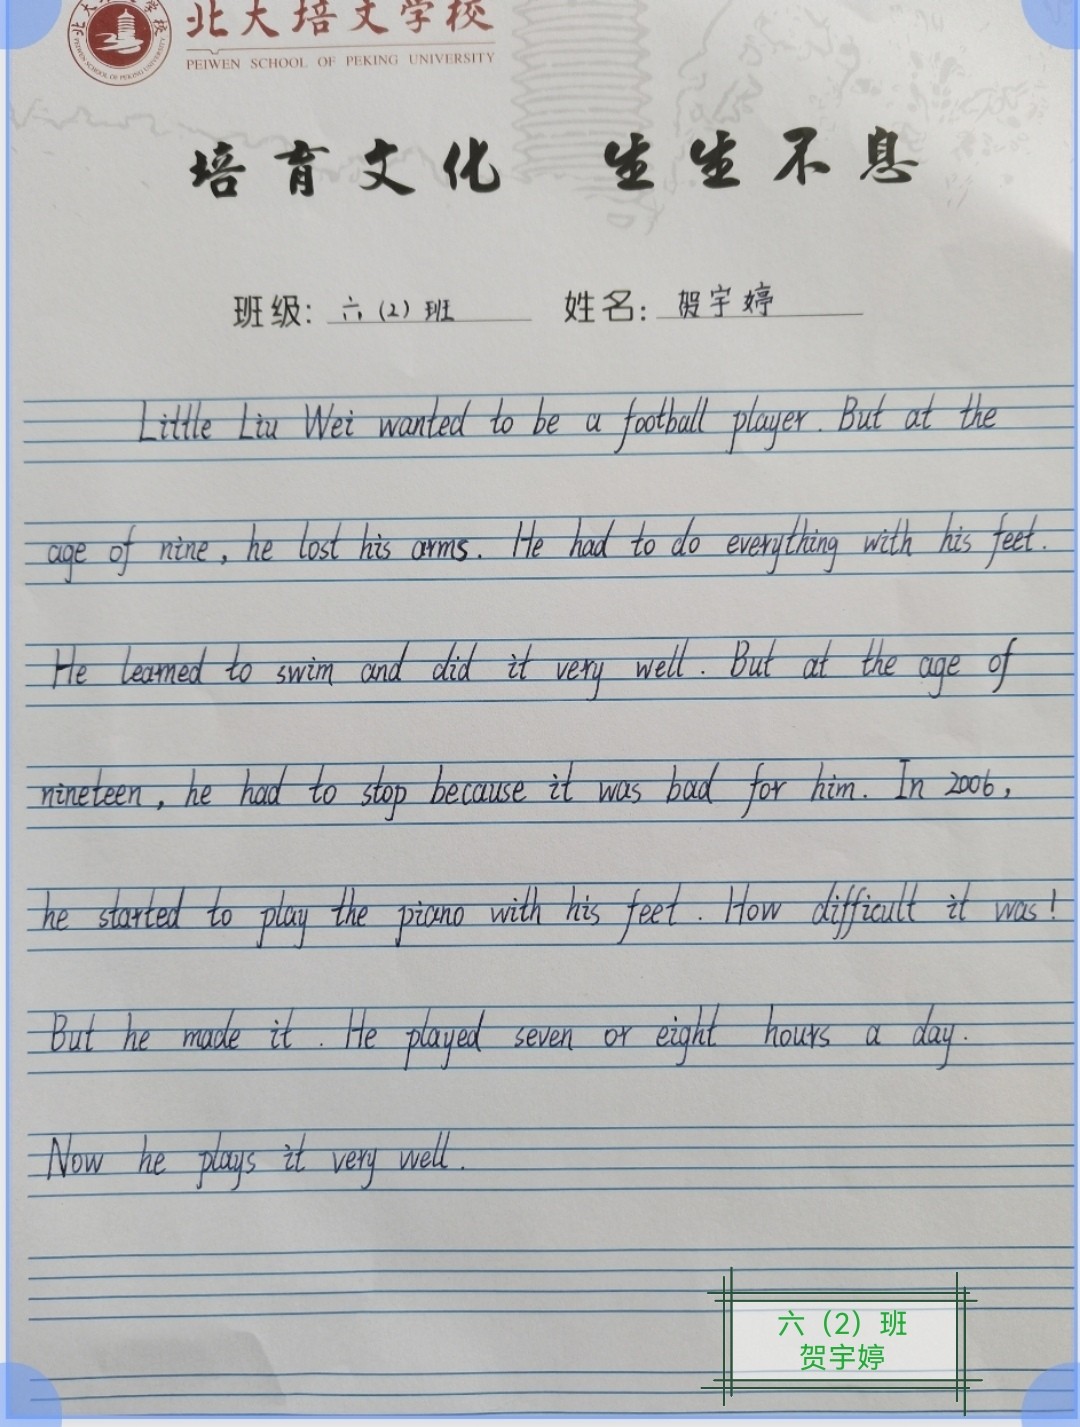 北大培文学校
PEIWEN SCHOOL OF PEKING UNIVERSITY
培育文化 生生不息
班级: 六（2）班 姓名: 贺宇婷
Little Liu Wei wanted to be a football player. But at the
age of nine, he lost his arms. He had to do everything with his feet.
He learned to swim and did it very well. But at the age of
nineteen, he had to stop because it was bad for him. In 2006,
he started to play the piano with his feet. How difficult it was!
But he made it. He played seven or eight hours a day.
Now he plays it very well.
六（2）班
贺宇婷